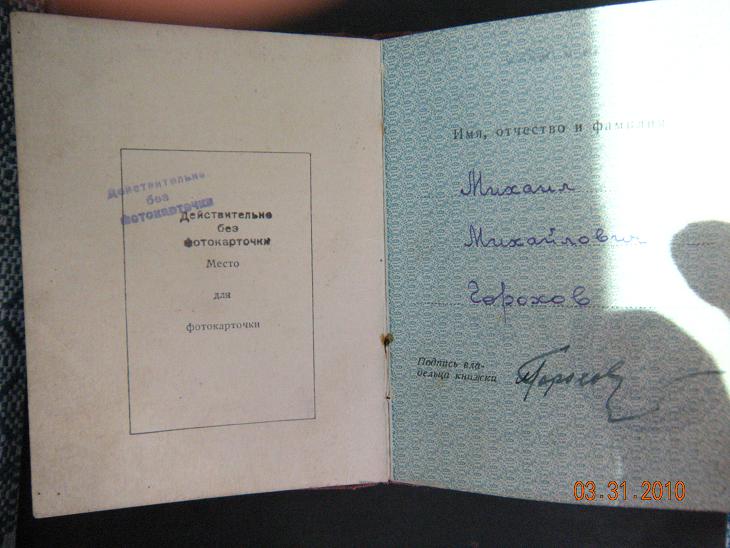 Действительно
без
фотокарточки
Действительно
без
фотокарточки
Место
для
фотокарточки
Имя, отчество и фамилия
Михаил
Михайлович
Горохов
Подпись вла-
дельца книжки
Горохов
03.31.2010